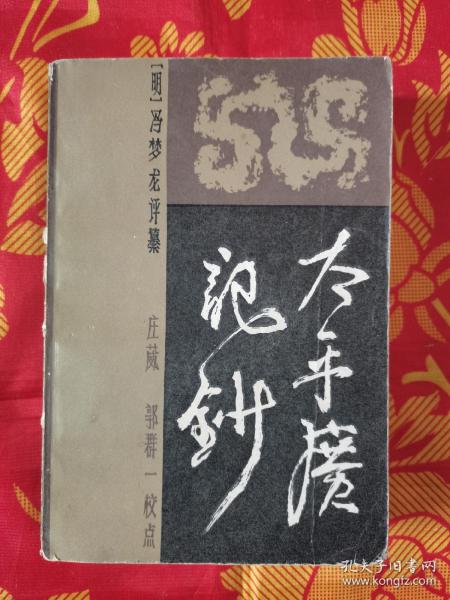 太平廣
記鈔
[明]冯梦龙评纂
庄葳 郭群一校点
孔夫子旧书网
www.kongfz.com